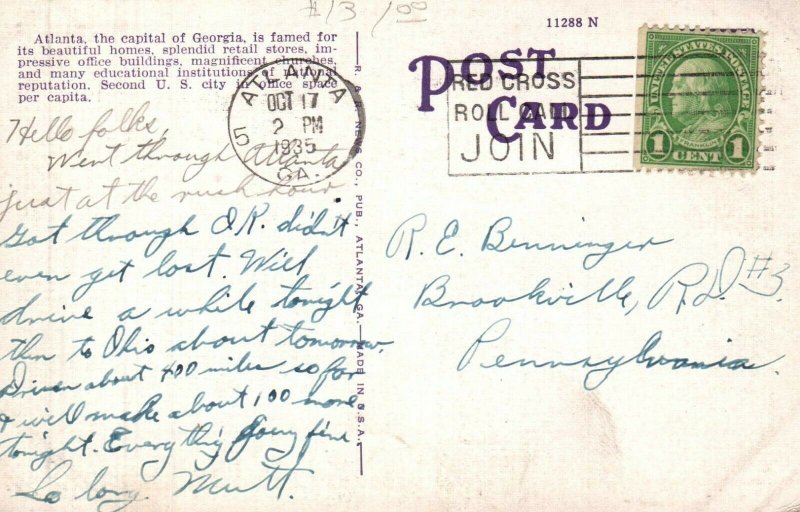 #13 1.00
Atlanta, the capital of Georgia, is famed for
its beautiful homes, splendid retail stores, im-
pressive office buildings, magnificent churches,
and many educational institutions of national
reputation. Second U. S. city in office space
per capita.
11288 N
POST
CARD
ATLANTA
OCT 17
2 PM
1935
GA.
5
RED CROSS
ROLL CALL
JOIN
UNITED STATES POSTAGE
FRANKLIN
1 CENT 1
R. & R. NEWS CO., PUB., ATLANTA, GA.—MADE IN U.S.A.
Hello folks,
Went through Atlanta
just at the rush hour
Got through O.K. didn't
even get lost. Will
drive a while tonight
then to Ohio about tomorrow.
Driven about 400 miles so far
& will make about 100 more
tonight. Everythig going fine
So long. Mutt.
R. E. Benninger
Brookville, R.D. #3.
Pennsylvania.